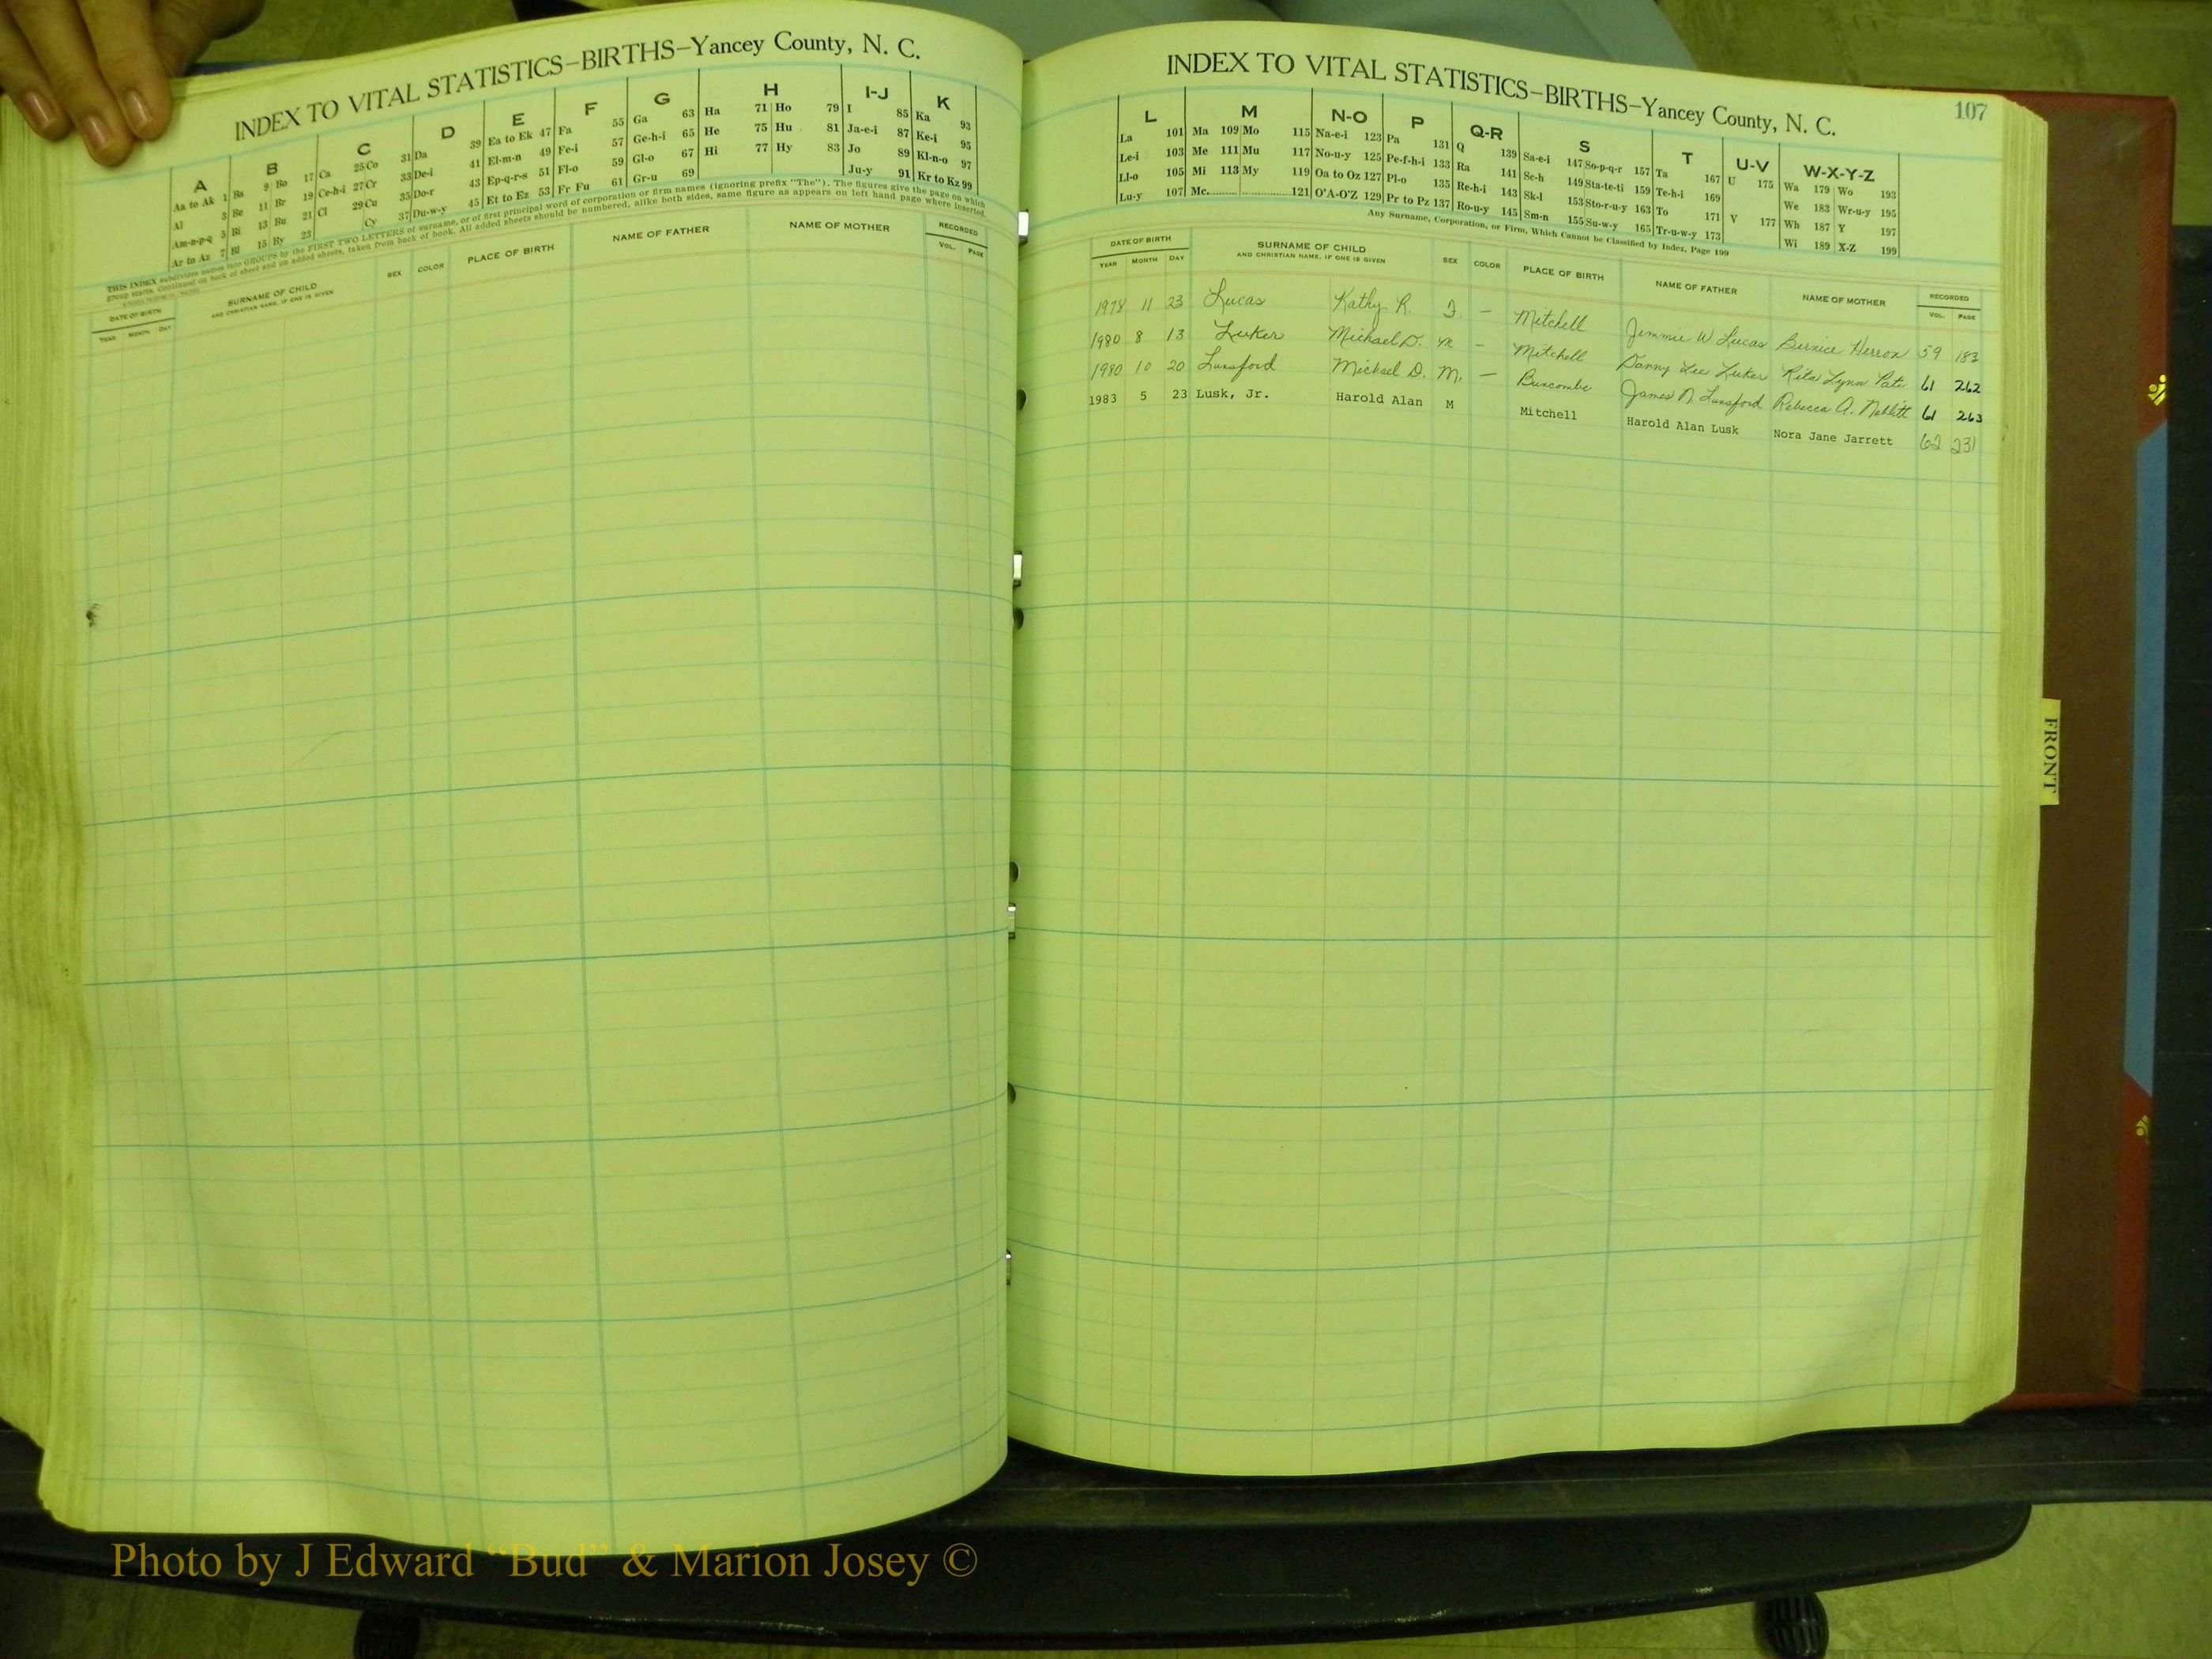 INDEX TO VITAL STATISTICS–BIRTHS–Yancey County, N. C.
A B C D E F G H I-J K
Aa to Ak 1 Ba 9 Bo 17 Ca 25 Co 31 Da 39 Ea to Ek 47 Fa 55 Ga 63 Ha 71 Ho 79 I 85 Ka 93
Al 3 Be 11 Br 19 Ce-h-i 27 Cr 33 De-i 41 El-m-n 49 Fe-i 57 Ge-h-i 65 He 75 Hu 81 Ja-e-i 87 Ke-i 95
Am-n-p-q 5 Bi 13 Bu 21 Cl 29 Cu 35 Do-r 43 Ep-q-r-s 51 Fl-o 59 Gl-o 67 Hi 77 Hy 83 Jo 89 Kl-n-o 97
Ar to Az 7 Bl 15 By 23 Cy 37 Du-w-y 45 Et to Ez 53 Fr Fu 61 Gr-u 69 Ju-y 91 Kr to Kz 99
THIS INDEX subdivides names into GROUPS by the FIRST TWO LETTERS of surname, or of first principal word of corporation or firm names (ignoring prefix "The"). The figures give the page on which
group starts. Continued on back of sheet and on added sheets, taken from back of book. All added sheets should be numbered, alike both sides, same figure as appears on left hand page where inserted.
DATE OF BIRTH
YEAR MONTH DAY
SURNAME OF CHILD
AND CHRISTIAN NAME, IF ONE IS GIVEN
SEX COLOR PLACE OF BIRTH NAME OF FATHER NAME OF MOTHER
RECORDED
VOL. PAGE
INDEX TO VITAL STATISTICS–BIRTHS–Yancey County, N. C.
107
L M N-O P Q-R S T U-V W-X-Y-Z
La 101 Ma 109 Mo 115 Na-e-i 123 Pa 131 Q 139 Sa-e-i 147 So-p-q-r 157 Ta 167 U 175 Wa 179 Wo 193
Le-i 103 Me 111 Mu 117 No-u-y 125 Pe-f-h-i 133 Ra 141 Sc-h 149 Sta-te-ti 159 Te-h-i 169 We 183 Wr-u-y 195
Ll-o 105 Mi 113 My 119 Oa to Oz 127 Pl-o 135 Re-h-i 143 Sk-l 153 Sto-r-u-y 163 To 171 V 177 Wh 187 Y 197
Lu-y 107 Mc. 121 O'A-O'Z 129 Pr to Pz 137 Ro-u-y 145 Sm-n 155 Su-w-y 165 Tr-u-w-y 173 Wi 189 X-Z 199
Any Surname, Corporation, or Firm, Which Cannot be Classified by Index, Page 199
DATE OF BIRTH
YEAR MONTH DAY
SURNAME OF CHILD
AND CHRISTIAN NAME, IF ONE IS GIVEN
SEX COLOR PLACE OF BIRTH NAME OF FATHER NAME OF MOTHER
RECORDED
VOL. PAGE
1978 11 23 Lucas Kathy R. F — Mitchell Jimmie W Lucas Bernice Herron 59 183
1980 8 13 Luker Michael D. M — Mitchell Danny Lee Luker Rita Lynn Pate 61 262
1980 10 20 Lunsford Michael D. M. — Buncombe James N. Lunsford Rebecca A. 61 263
1983 5 23 Lusk, Jr. Harold Alan M Mitchell Harold Alan Lusk Nora Jane Jarrett 62 231
FRONT
Photo by J Edward “Bud” & Marion Josey ©